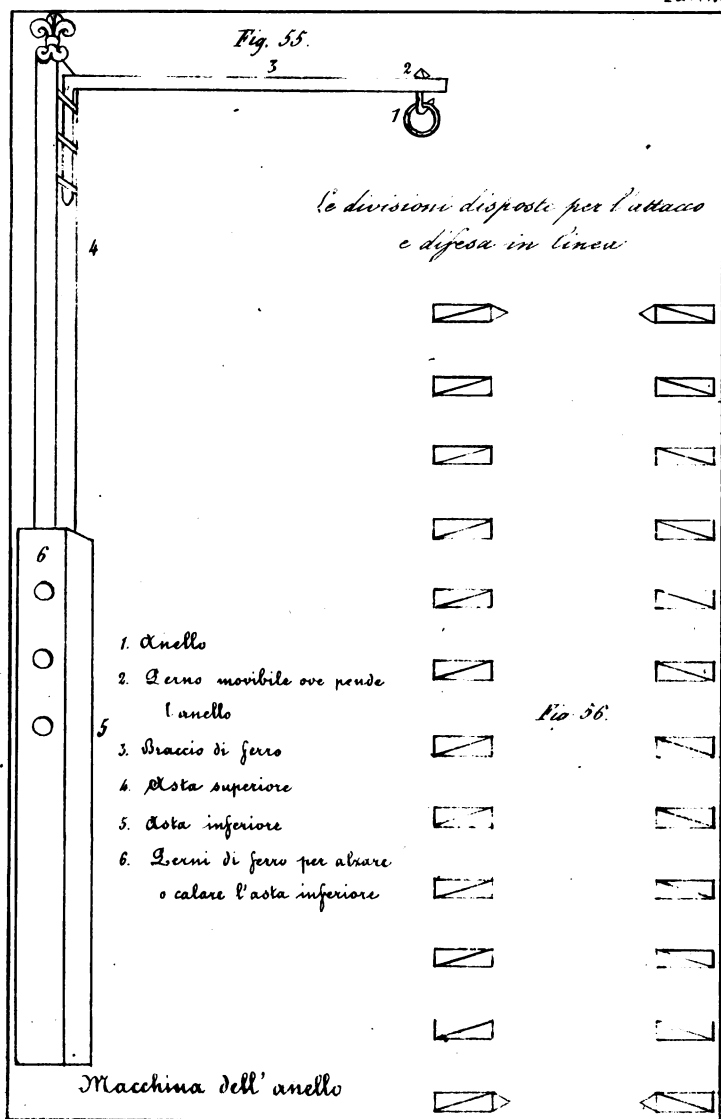 Fig. 55.
3
2
1
Le divisioni disposte per l'attacco
e difesa in linea
4
6
5
1. Anello
2. Perno movibile ove pende
l'anello
3. Braccio di ferro
4. Asta superiore
5. Asta inferiore
6. Perni di ferro per alzare
o calare l'asta inferiore
Fig 56.
Macchina dell' anello